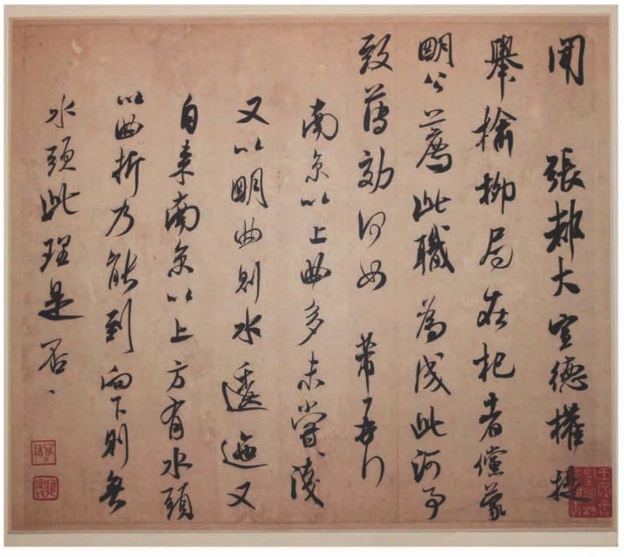 聞 張都大宣德權提
舉榆柳局在杞者儻蒙
明公薦此職為成此河事
致薄効何如 芾再拜
南京以上曲多未嘗淺
又以明曲則水逶迤又
自来南京以上方有水頭
以曲折乃能到向下則無
水頭此理是否